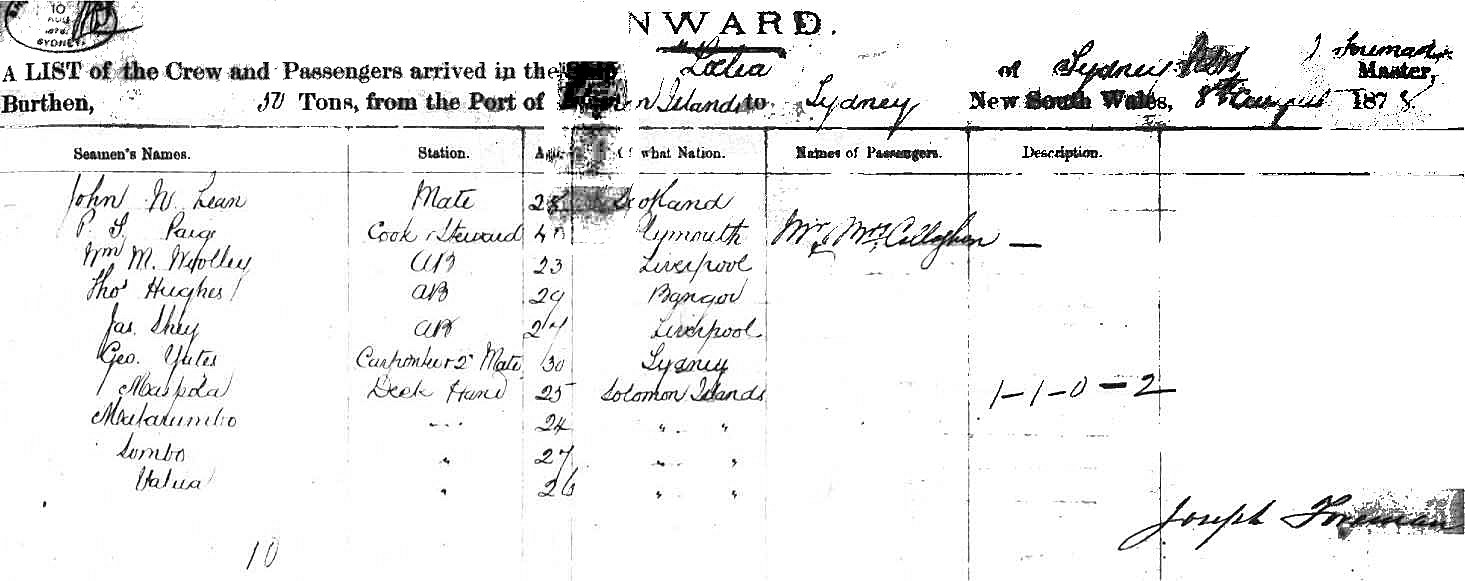 10
SYDNEY
NWARD.
A LIST of the Crew and Passengers arrived in the Ship Lelia of Sydney J Foreman Master,
Burthen, 50 Tons, from the Port of Islands to Sydney New South Wales, 8th August 1878.
Seamen's Names. Station. Age what Nation. Names of Passengers. Description.
John Lean Mate 28 Scotland
P. Paige Cook & Steward 40 Plymouth Mr & Mrs Callaghan —
Wm M. Woolley AB 23 Liverpool
Thos Hughes AB 29 Bangor
Jas. Shey AB 27 Liverpool
Geo. Yates Carpenter & 2d Mate 30 Sydney
Deck Hand 25 Solomon Islands 1-1-0-2
" 24 " "
Sombo " 27 " "
Valua " 26 " "
Joseph Foreman
10